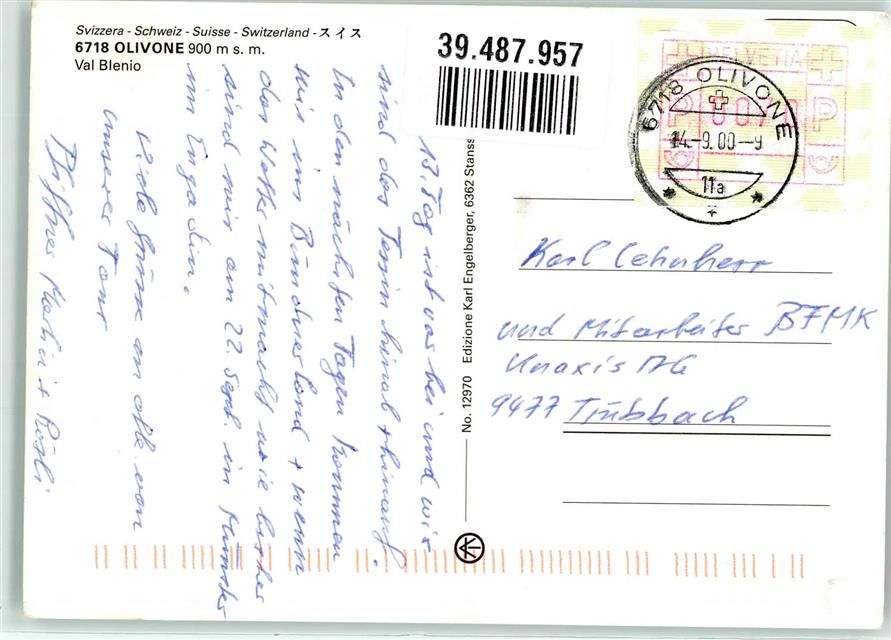 Svizzera - Schweiz - Suisse - Switzerland - スイス
6718 OLIVONE 900 m s. m.
Val Blenio
39.487.957
HELVETIA
P P
6718 OLIVONE
14.-9.00--9
11a
No. 12970 Edizione Karl Engelberger, 6362 Stanss
13. Tag ist vorbei und wir
sind das Tessin hinab + hinauf.
In den nächsten Tagen kommen
wir ins Bündnerland + wenn
das Wetter mitmacht wie bisher
sind wir am 22. Sept. in Münster
im Engadin.
Viele Grüsse an alle von
unserer Tour
Pfiffner Martin + Rösli
Karl Lehnherr
und Mitarbeiter BFMK
Unaxis AG
9477 Trübbach